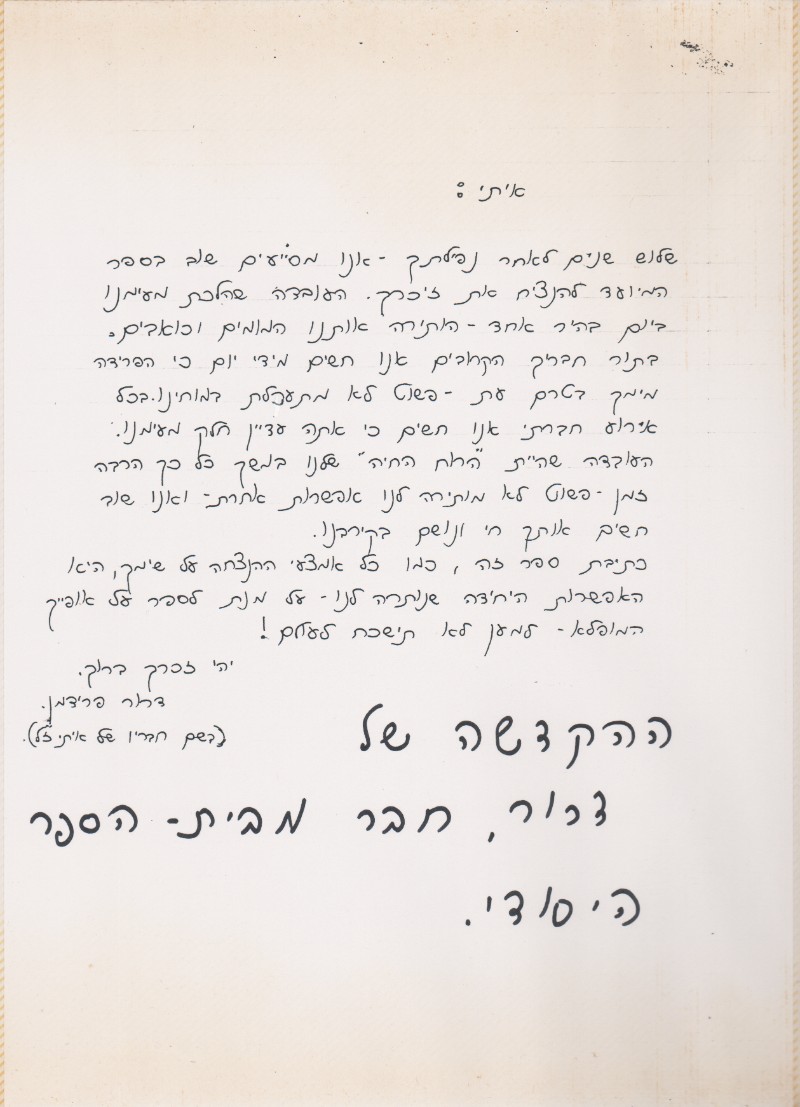 איתי :
שלוש שנים לאחר נפילתך - אנו מסייעים שוב בספר
המיועד להנציח את זיכרך. העובדה שהלכת מעימנו
ביום בהיר אחד - הותירה אותנו המומים וכואבים.
בתור חבריך הקרובים אנו חשים מידי יום כי הפרידה
מימך בטרם עת - פשוט לא מתעכלת במוחינו. בכל
אירוע חברתי אנו חשים כי אתה עדיין חלק מעימנו.
העובדה שהיית "הרוח החיה" שלנו במשך כל כך הרבה
זמן - פשוט לא מותירה לנו אפשרות אחרת - ואנו שוב
חשים אותך חי ונושם בקירבנו.
כתיבת ספר זה, כמו כל אמצעי ההנצחה על שימך, היא
האפשרות היחידה שנותרה לנו - על מנת לספר על אופייך
המופלא - למען לא תישכח לעולם !
יהי זכרך ברוך.
דרור פרידמן.
(בשם חבריו של איתי ז"ל).
ההקדשה של
דרור, חבר מבית - הספר
היסודי.